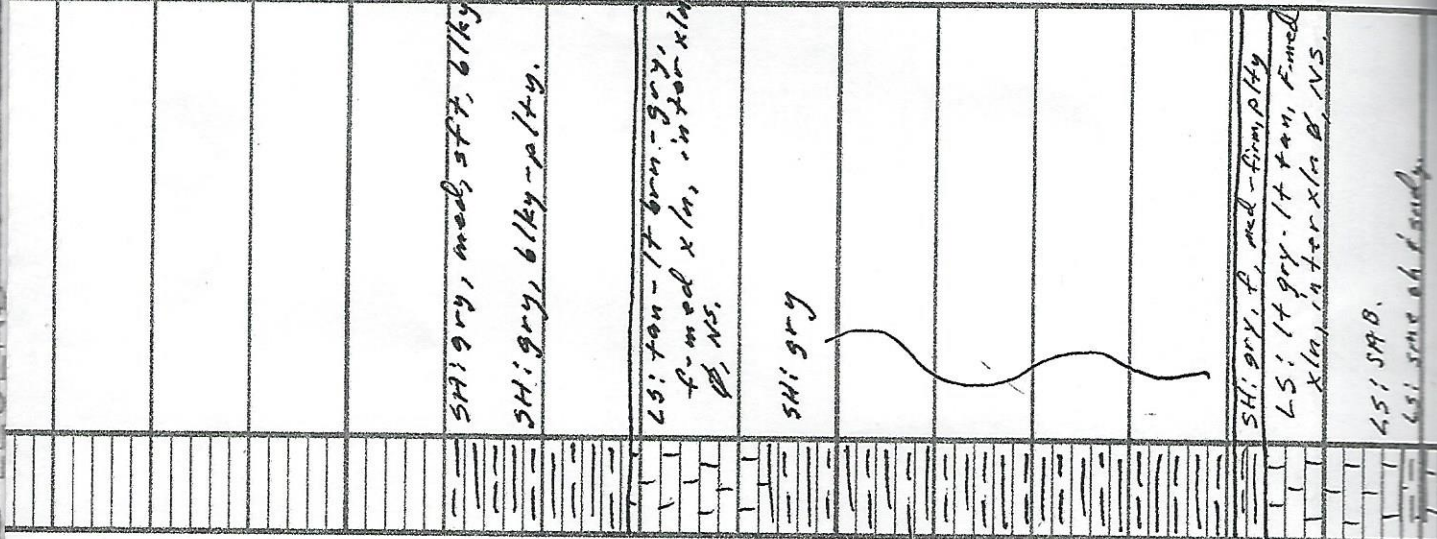 SH: gry, med, sft, blky
SH: gry, blky-plty.
LS: tan-lt brn-gry,
f-med xln, inter xln
ø, NS.
SH: gry
SH: gry, f, med-firm, plty
LS: lt gry-lt tan, F-med
xln, interxln ø, NS,
LS: SAB.
LS: sme